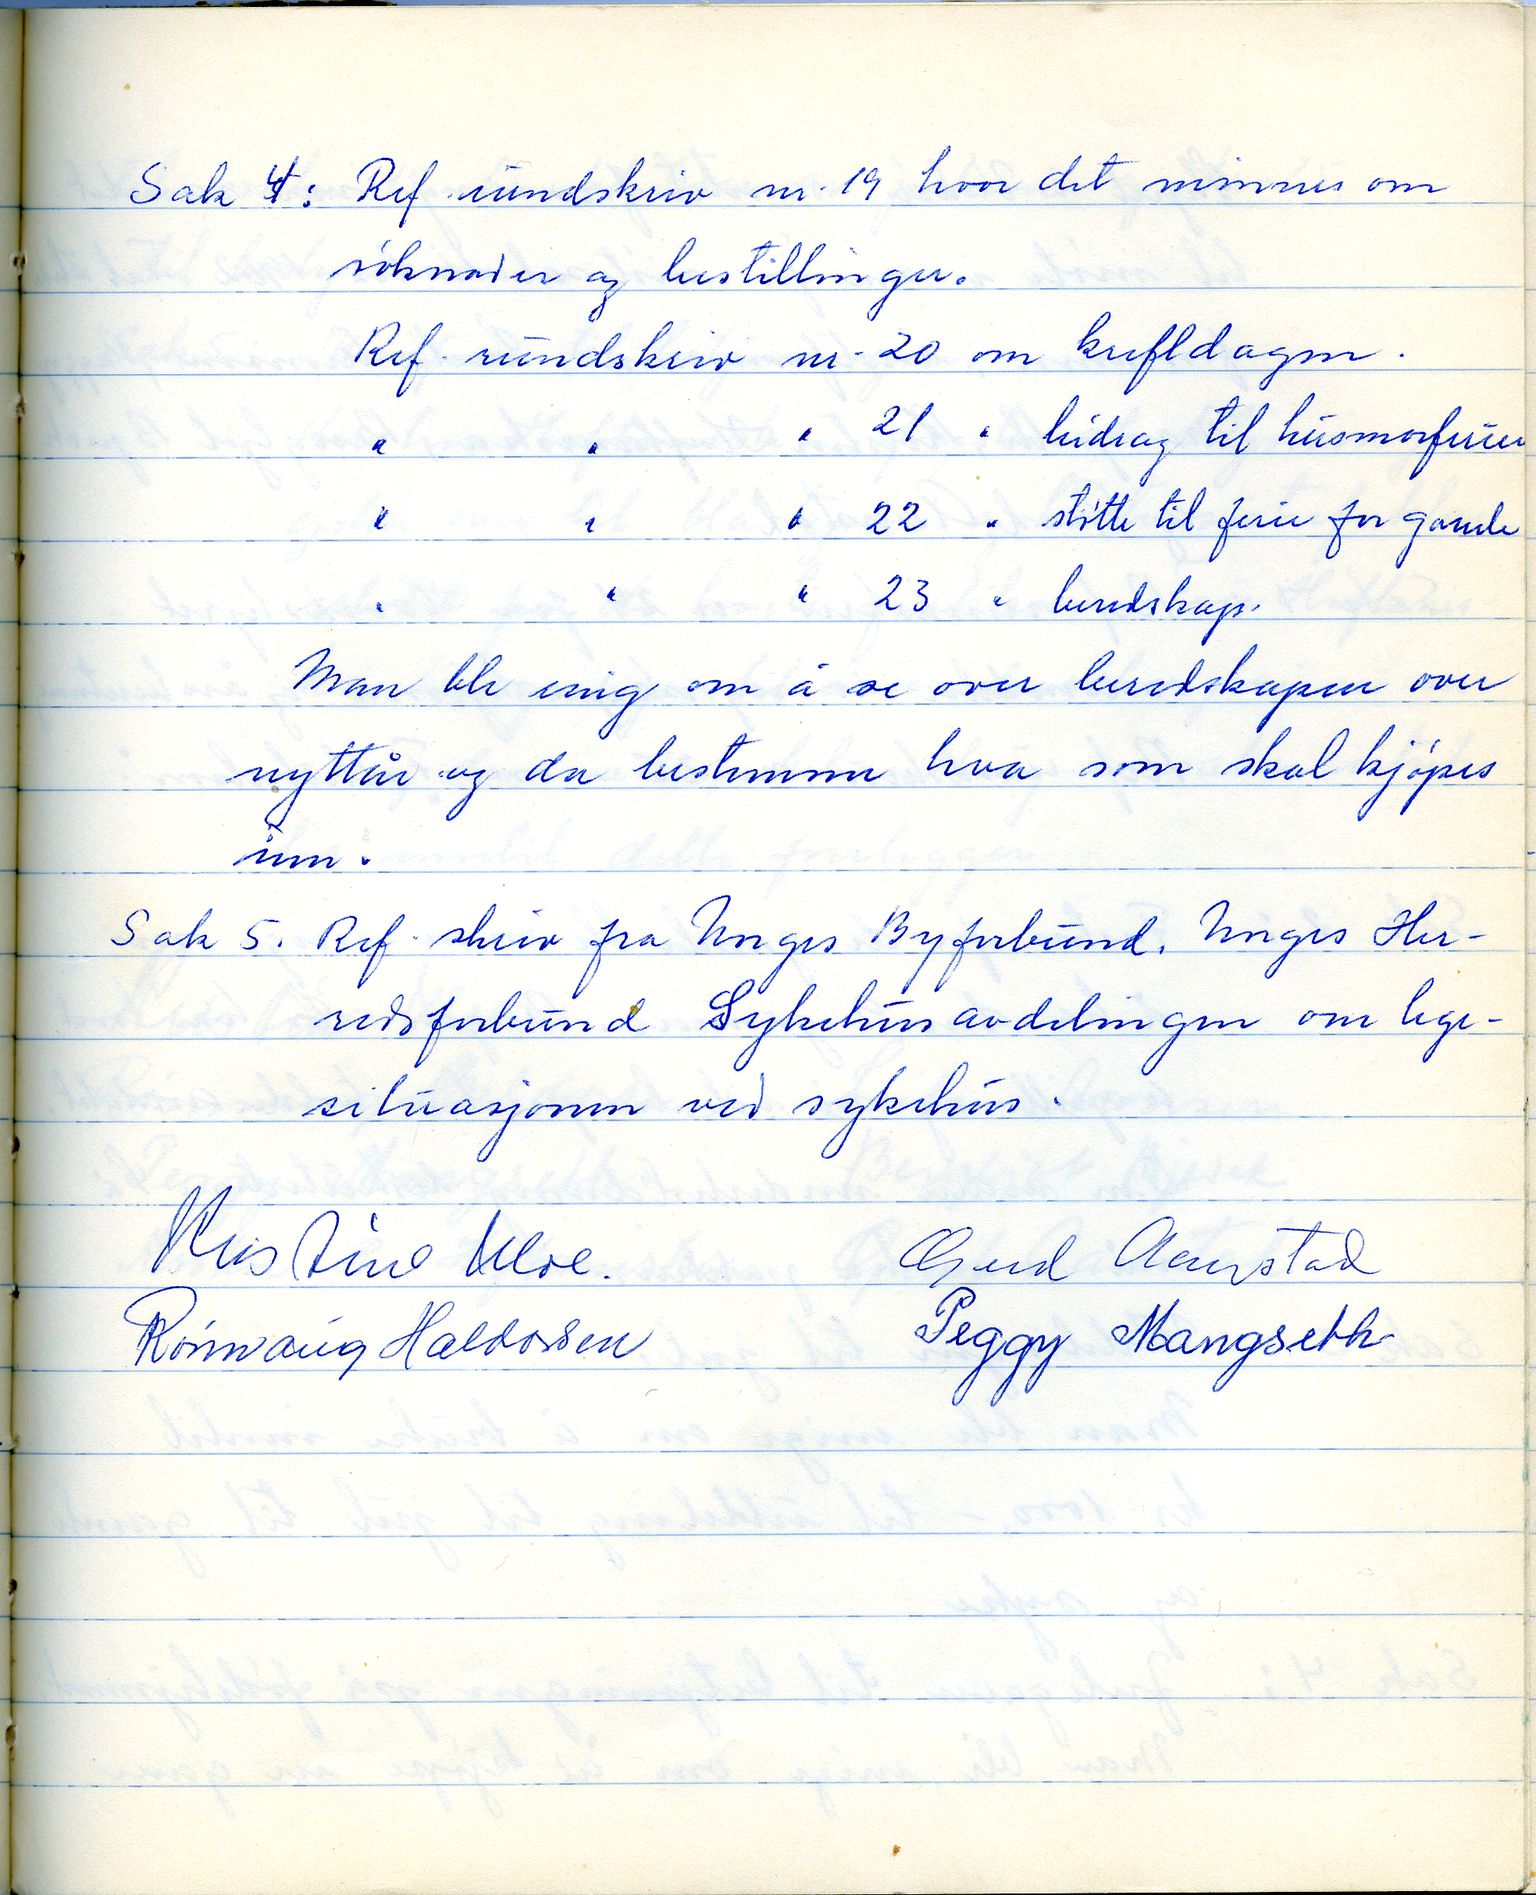 Sak 4: Ref. rundskriv nr. 19 hvor det minnes om
söknader og bestillinger.
Ref. rundskriv nr. 20 om kreftdagen.
" " " 21 " bidrag til husmorferier
" " " 22 " stötte til ferie for gamle
" " " 23 " beredskap.
Man ble enig om å se over beredskapen over
nyttår og da bestemme hva som skal kjöpes
inn.
Sak 5. Ref. skriv fra Norges Byforbund. Norges Her-
redsforbund Sykehusavdelingen om lege-
situasjonen ved sykehus.
Kristine Gerd Aarrestad
Haldorsen Peggy Mangseth